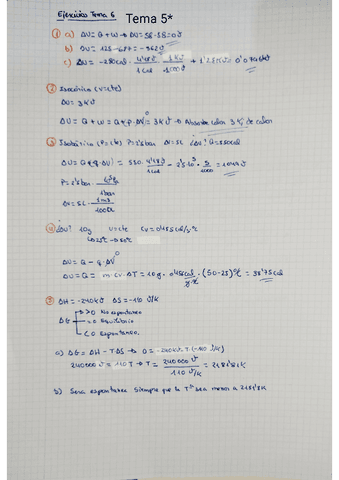 Ejercicios Tema 6 Tema 5*
① a) ΔU = Q + W → ΔU = 58 - 58 = 0J
b) ΔU = 125 - 487 = -362J
c) ΔU = -280cal · 4'18J / 1cal · 1KJ / 1000J + 1'25KJ = 0'0796KJ
② Isocórica (V=cte)
ΔU = 3KJ
ΔU = Q + W = Q + P·ΔV = 3KJ → Absorbe calor 3KJ de calor
③ Isobárica (P=cte) P=2'5bar ΔV=5L ¿ΔU? Q=550cal
ΔU = Q + (P·ΔV) = 550 · 4'18J / 1cal - 2'5·10⁵ · 5 / 1000 = 1049J
P = 2'5bar · 10⁵Pa / 1bar
ΔV = 5L · 1m³ / 1000L
④ ¿ΔU? 10g V=cte Cv = 0'155cal/g·ºC
25ºC → 50ºC
ΔU = Q - P·ΔV⁰
ΔU = Q = m·Cv·ΔT = 10g · 0'155cal / g·ºC · (50-25)ºC = 38'75cal
⑤ ΔH = -240KJ ΔS = -110 J/K
ΔG > 0 No espontaneo
= 0 Equilibrio
< 0 Espontaneo.
a) ΔG = ΔH - TΔS → 0 = -240KJ - T(-110 J/K)
240000J = 110T → T = 240000J / 110 J/K = 2181'81K
b) Sera espontanea siempre que la Tª sea menor a 2181'8K